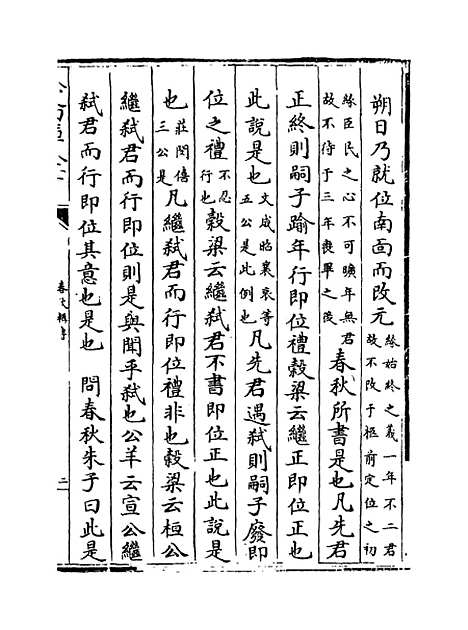 朔日乃就位南面而改元緣始終之義一年不二君故不改于柩前定位之初
緣臣民之心不可曠年無君故不待于三年喪畢之後春秋所書是也凡先君
正終則嗣子踰年行即位禮穀梁云繼正即位正也
此說是也文成昭襄哀等五公是此例也凡先君遇弑則嗣子廢即
位之禮不忍行也穀梁云繼弑君不書即位正也此說是
也莊閔僖三公是凡繼弑君而行即位禮非也穀梁云桓公
繼弑君而行即位則是與聞乎弑也公羊云宣公繼
弑君而行即位其意也是也 問春秋朱子曰此是
二